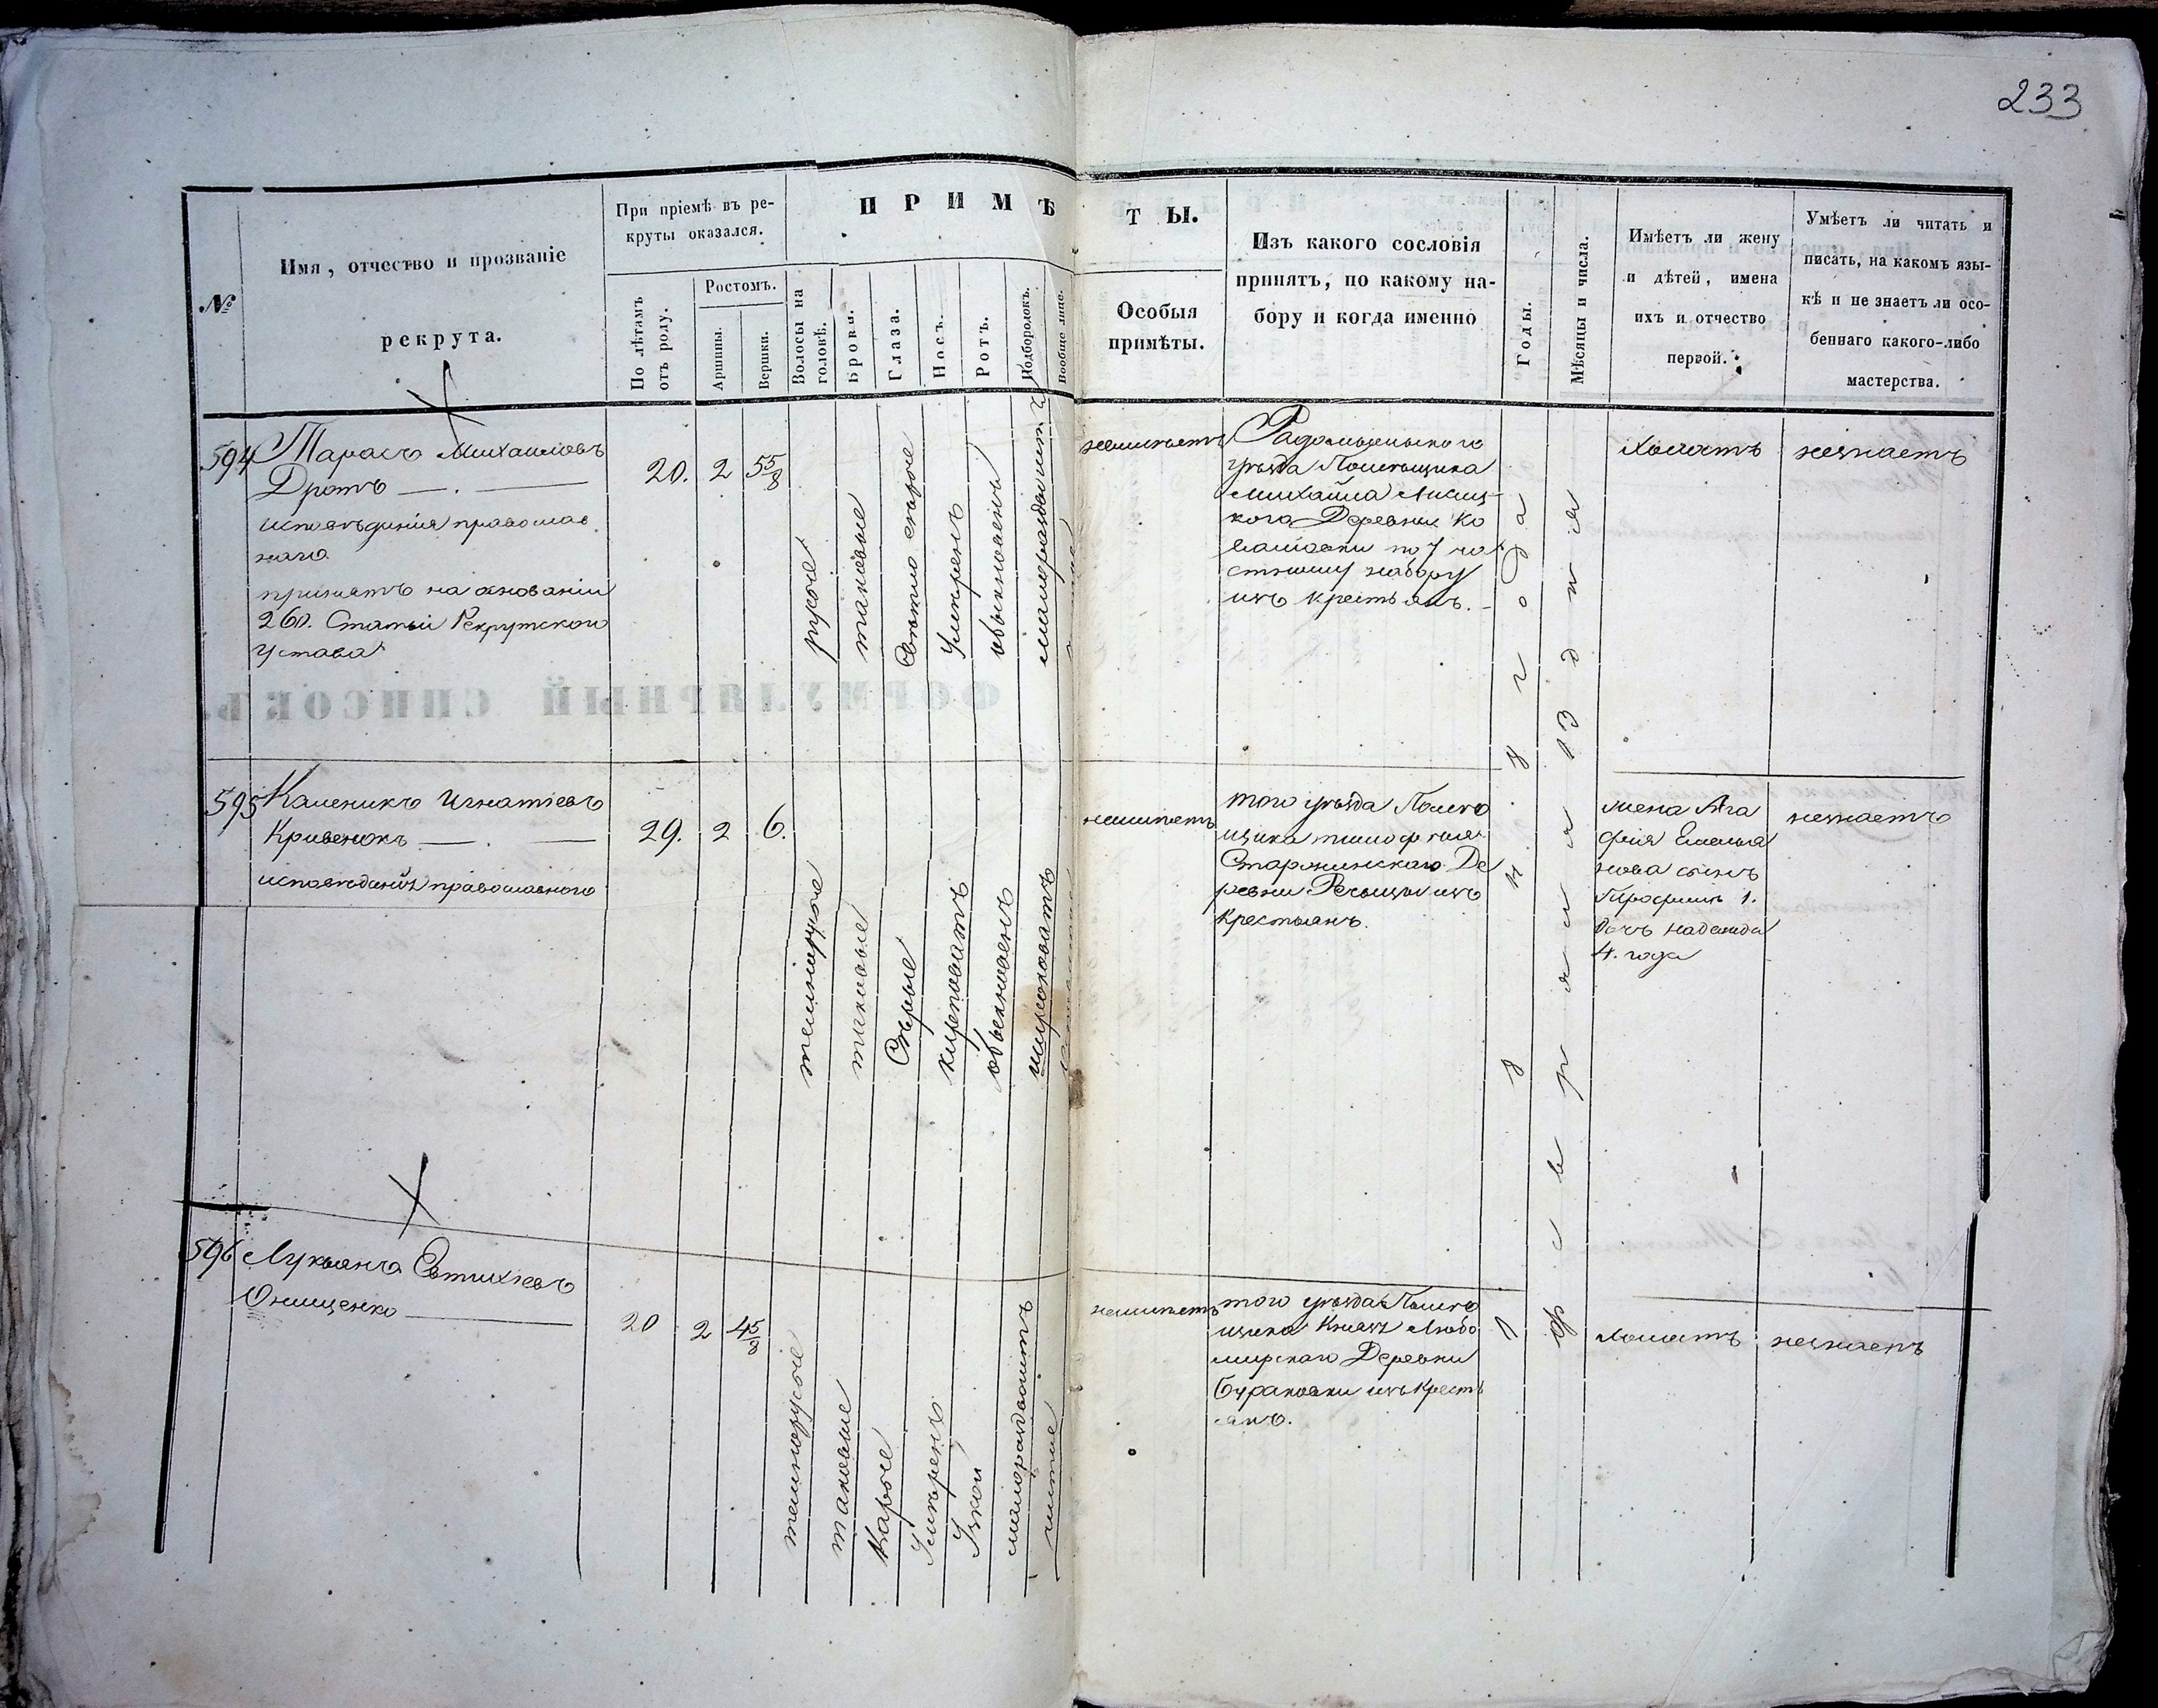 233
№
Имя, отчество и прозваніе
рекрута.
При пріемѣ въ ре-
круты оказался.
По лѣтамъ
отъ роду.
Ростомъ.
Аршины.
Вершки.
ПРИМѢ
ТЫ.
Волосы на
головѣ.
Брови.
Глаза.
Носъ.
Ротъ.
Подбородокъ.
Вообще лице.
Особыя
примѣты.
Изъ какого сословія
принятъ, по какому на-
бору и когда именно
Годы.
Мѣсяцы и числа.
Имѣетъ ли жену
и дѣтей, имена
ихъ и отчество
первой.
Умѣетъ ли читать и
писать, на какомъ язы-
кѣ и не знаетъ ли осо-
беннаго какого-либо
мастерства.
594
Тарасъ Михайловъ
Дротъ
исповѣданія православ
наго
принятъ на основаніи
260. Статьи Рекрутскаго
Устава
20.
2
5 5/8
русые
таковые
Свѣтло серые
Умѣренъ
обыкновенъ
неимѣетъ
Радомысльскаго
уѣзда Помѣщика
Михайла
кого Деревни Ко
по 7 ча
стному набору
изъ крестьянъ.
1848 года
февраля 13 дня
Холостъ
незнаетъ
ФОРМУЛЯРНЫЙ СПИСОКЪ.
595
Каленикъ Игнатіевъ
Кривенокъ
исповѣданія православного
29.
2
6.
темнорусые
таковые
Серые
обыкновенъ
широковатъ
неимѣетъ
того уѣзда Помѣ
щика
Старжинскаго Де
ревни изъ
крестьянъ.
жена Ага
фія Емелья
нова сынъ
Трофимъ 1.
дочь надежда
4. года
незнаетъ
596
Лукьянъ Евтихіевъ
Онищенко
20
2
4 5/8
темнорусые
таковые
Карые
Умѣренъ
Узкой
чистые
неимѣетъ
того уѣзда Помѣ
щика Князя Любо
мирскаго Деревни
Бураковки изъ крест
янъ.
Холостъ
незнаетъ